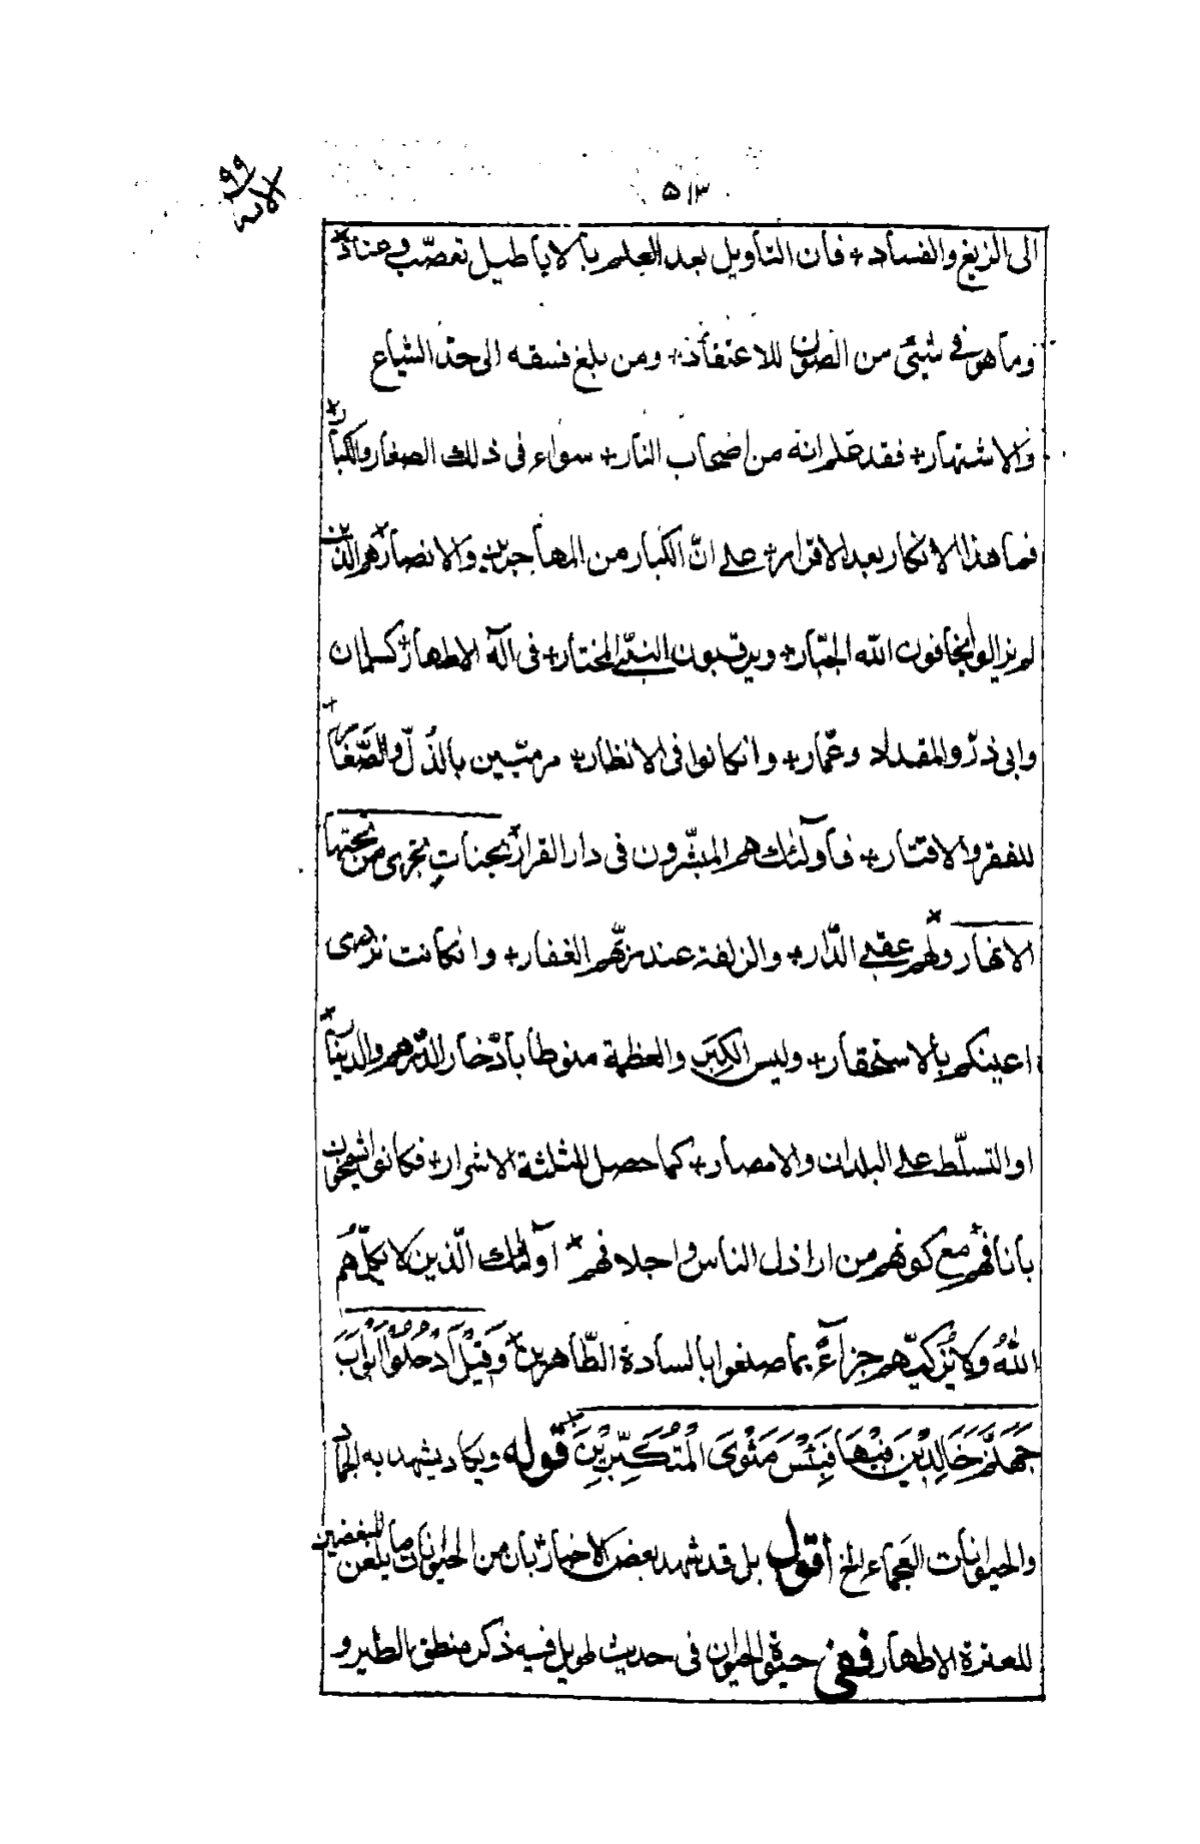 ٥١٣
الى الزيغ والفساد + فان التأويل بعد العلم بالاباطيل تعصّب وعناد
وما هو فى شيئ من الصون للاعتقاد + ومن بلغ فسقه الى حدّ الشياع
والاشتهار + فقد علم انه من اصحاب النار + سواء فى ذلك الصغار والكبار
فما هذا الانكار بعد الاقرار + على انّ الكبار من المهاجرين والانصار هم الذين
لم يزالوا يخافون الله الجبّار + ويرقبون النبىّ المختار + فى آله الاطهار + كسلمان
وابى ذرّ والمقداد وعمّار + وانكانوا فى الانظار + مرمّيين بالذلّ والصَّغَار
للفقر والاقتار + فاولئك هم المبشّرون فى دار القرار بجناتٍ تجرى من تحتها
الانهار ولهم عقبى الدّار + والزلفة عند ربّهم الغفار + وانكانت تزدرى
اعينكم بالاستحقار + وليس الكِبَر والعظمة منوطا بادّخار الدّرهم والدينار
او التسلّط على البلدان والامصار + كما حصل للثلثة الاشرار + فكانوا يشمخون
بانافهم مع كونهم من اراذل الناس واجلافهم اولئك الّذين لا يكلّمهُم
اللهُ ولا يُزكّيهم جزآءً بما صنعوا بالسادة الطّاهرين وَقِيْلَ ادْخُلُوْا اَبْوَابَ
جَهَنَّمَ خَالِدِيْنَ فِيْهَا فَبِئْسَ مَثْوَى الْمُتَكَبِّرِيْنَ قوله ويكاد يشهد به الجماد
والحيوانات العجماء الخ اقول بل قد شهد بعض الاخبار بان من الحيوانات ما يلعن المبغضين
للعترة الاطهار ففى حيوة الحيوان فى حديث طويل فيه ذكر منطق الطير و